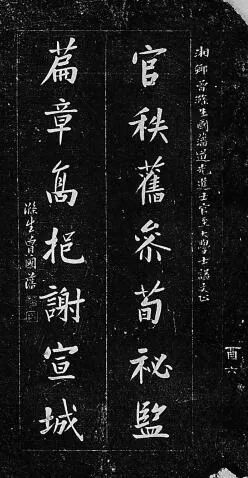 湘鄉曾滌生國藩道光進士官至大學士諡文正
官秩舊參荀祕監
篇章高挹謝宣城
滌生曾國藩
酉六